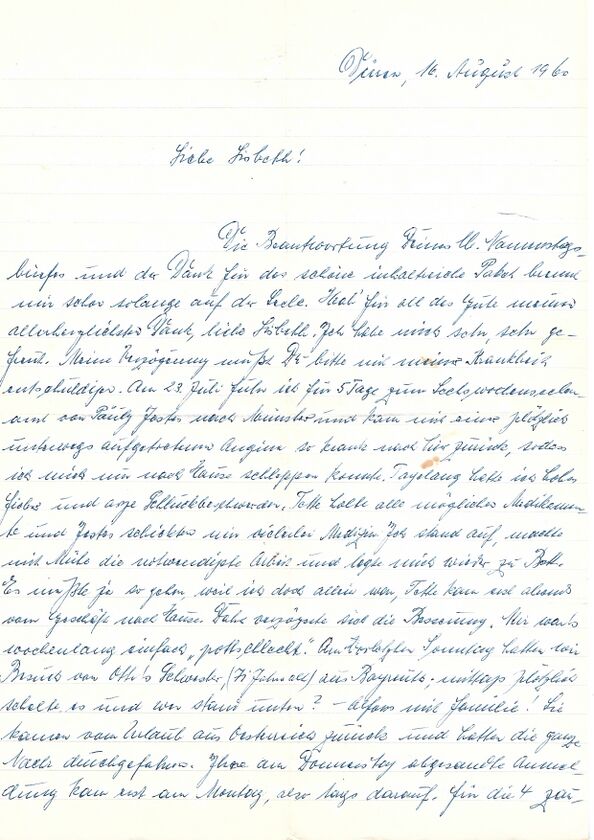 Düren, 16. August 1960
Liebe Lisbeth!
Die Beantwortung Deines lb. Namenstags-
briefes und der Dank für das schöne inhaltreiche Paket brennt
mir schon solange auf der Seele. Hab' für all das Gute meinen
allerherzlichsten Dank, liebe Lisbeth. Ich habe mich sehr, sehr ge-
freut. Meine Verzögerung mußt Du bitte mit meiner Krankheit
entschuldigen. Am 23. Juli fuhr ich für 5 Tage zum Sechswochenseelen-
amt von Pauly nach Münster und kam mit einer plötzlich
unterwegs aufgetretenen Angina so krank nach hier zurück, sodass
ich mich nur nach Hause schleppen konnte. Tagelang hatte ich hohes
Fieber und arge Schluckbeschwerden. holte alle möglichen Medikamen-
te und schickten mir vielerlei Medizin. Ich stand auf, machte
mit Mühe die notwendigste Arbeit und legte mich wieder zu Bett.
Es mußte ja so gehen, weil ich doch allein war, kam erst abends
vom Geschäft nach Hause. Daher verzögerte sich die Besserung. Mir war's
wochenlang einfach "pottschlecht". Am vorletzten Sonntag hatten wir
Besuch von Otto's Schwester (71 Jahre alt) aus Bayreuth; mittags plötzlich
schellte es und wer stand unten? - Alfons mit Familie! Sie
kamen vom Urlaub aus Oesterreich zurück und hatten die ganze
Nacht durchgefahren. Ihre am Donnerstag abgesandte Anmel-
dung kam erst am Montag, also tags darauf. Für die 4 zau-